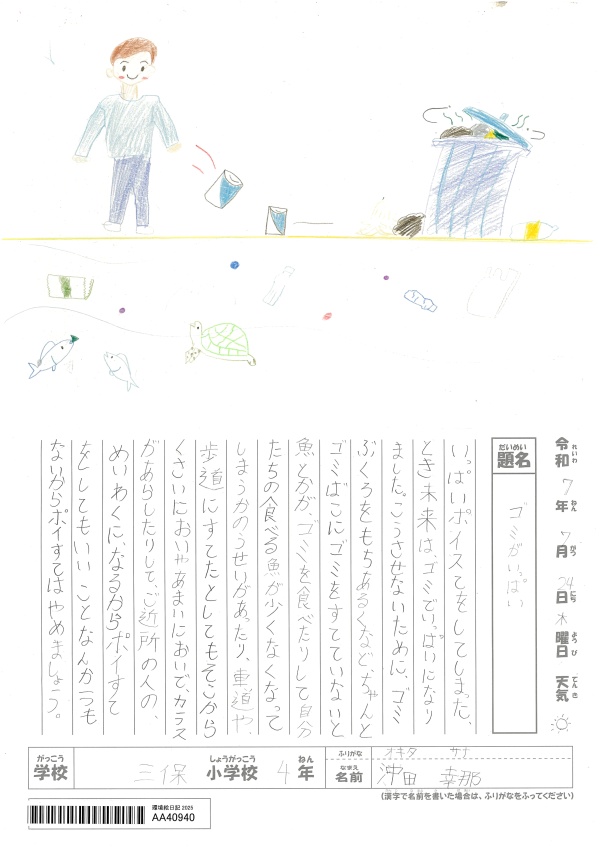 令和 7年 7月 24日 木曜日 天気
れいわ ねん がつ にち ようび てんき
だいめい
題名
ゴミがいっぱい
いっぱいポイすてをしてしまった、
とき未来は、ゴミでいっぱいになり
ました。こうさせないために、ゴミ
ぶくろをもちあるくなど、ちゃんと
ゴミばこにゴミをすてていないと
魚とかが、ゴミを食べたりして自分
たちの食べる魚が少くなくなって
しまうかのうせいがあったり、車道や、
歩道にすてたとしてもそこから
くさいにおいやあまいにおいで、カラス
があらしたりして、ご近所の人の、
めいわくに、なるからポイすて
をしてもいいことなんか一つも
ないからポイすてはやめましょう。
がっこう しょうがっこう ねん
学校 三保 小学校 4年
ふりがな オキタ サナ
なまえ
名前 沖田 幸那
(漢字で名前を書いた場合は、ふりがなをふってください)
環境絵日記 2025
AA40940